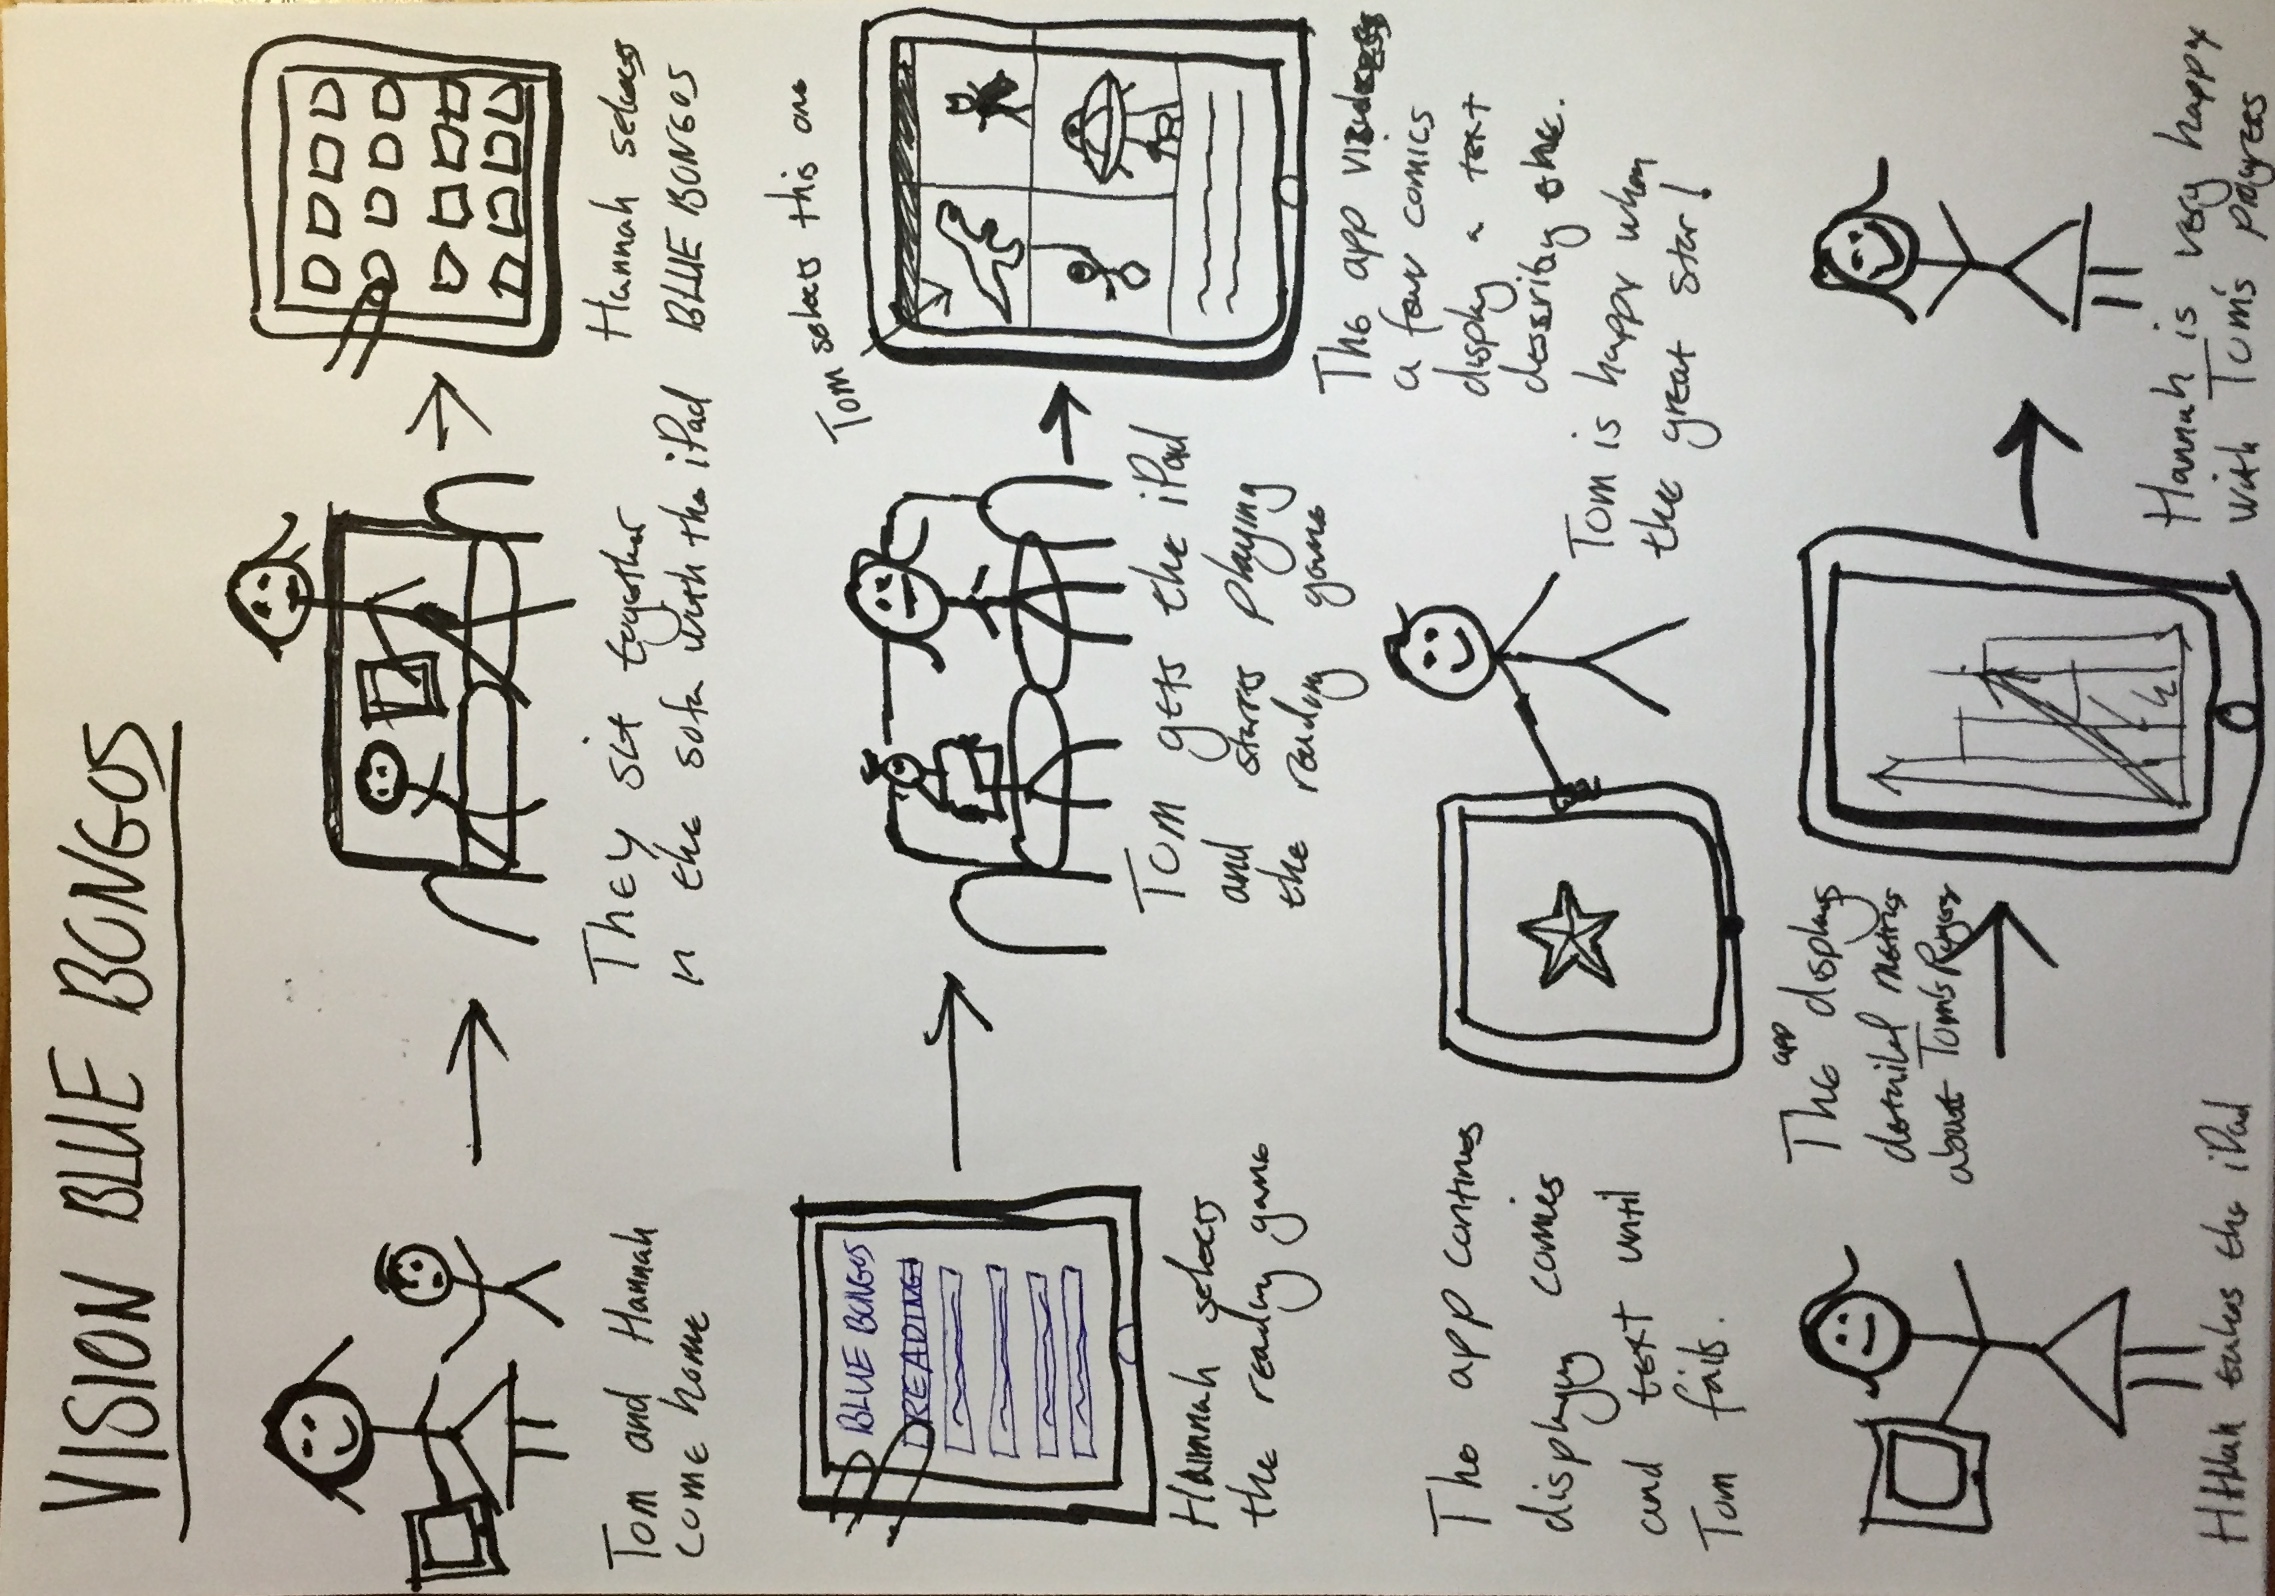 VISION BLUE BONGOS
Tom and Hannah
come home
They sit together
in the sofa with the iPad
Hannah selects
BLUE BONGOS
BLUE BONGOS
READING
Hannah selects
the reading game
Tom gets the iPad
and starts playing
the reading game
Tom selects this one
The app
a few comics
display a text
describing one.
The app continues
displaying comics
and text until
Tom fails.
Tom is happy when
the great star!
Hannah takes the iPad
The app displays
detailed metrics
about Tom's
Hannah is very happy
with Tom's progress